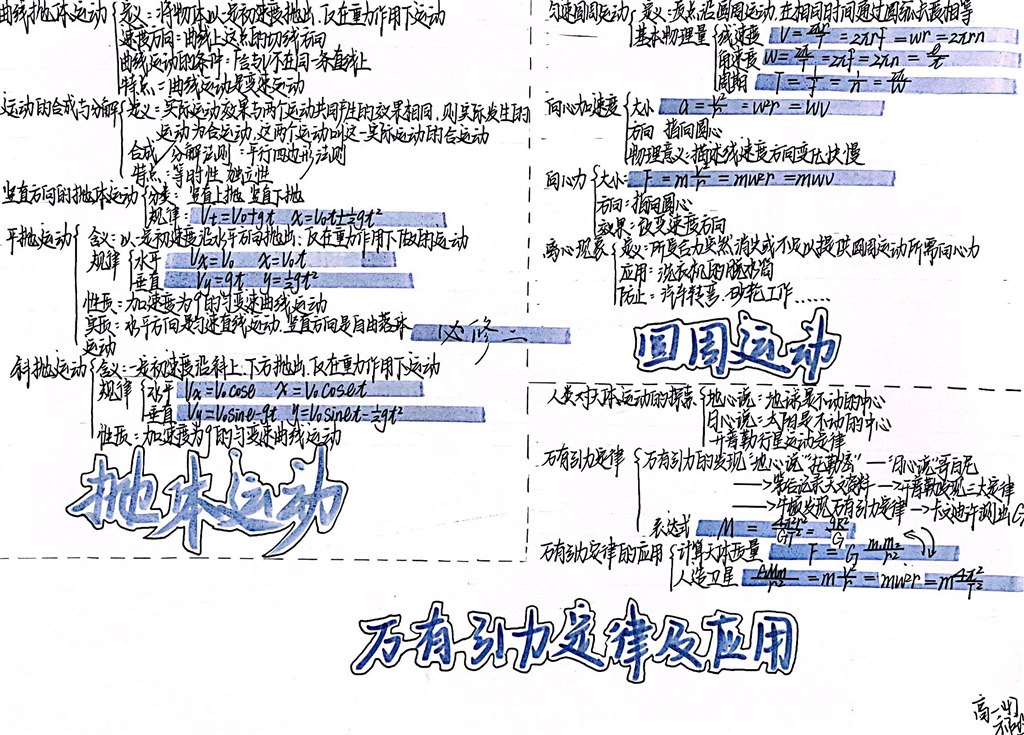 曲线抛体运动 定义：将物体以一定初速度抛出、仅在重力作用下运动
速度方向：曲线上这点的切线方向
曲线运动的条件：F合与V不在同一条直线上
特点：曲线运动是变速运动
运动的合成与分解 定义：实际运动效果与两个运动共同产生的效果相同，则实际发生的
运动为合运动，这两个运动叫这一实际运动的合运动
合成／分解法则：平行四边形法则
特点：等时性 独立性
竖直方向的抛体运动 分类：竖直上抛 竖直下抛
规律：Vt=V0+gt x=V0t+½gt²
平抛运动 含义：以一定初速度沿水平方向抛出、仅在重力作用下做的运动
规律 水平 Vx=V0 x=V0t
垂直 Vy=gt y=½gt²
性质：加速度为g的匀变速曲线运动
实质：水平方向是匀速直线运动，竖直方向是自由落体
运动
必修二
斜抛运动 含义：一定初速度沿斜上、下方抛出、仅在重力作用下运动
规律 水平 Vx=V0cosθ x=V0cosθt
垂直 Vy=V0sinθ-gt y=V0sinθt-½gt²
性质：加速度为g的匀变速曲线运动
抛体运动
匀速圆周运动 定义：质点沿圆周运动，在相同时间通过圆弧长度相等
基本物理量 线速度 V=2πr/T=2πrf=wr=2πrn
角速度 w=2π/T=2πf=2πn=θ/t
周期 T=1/f=1/n=2π/w
向心加速度 大小 a=V²/r=w²r=wv
方向 指向圆心
物理意义：描述线速度方向变化快慢
向心力 大小：F=mV²/r=mw²r=mwv
方向：指向圆心
效果：改变速度方向
离心现象 定义：所受合力突然消失或不足以提供圆周运动所需向心力
应用：洗衣机的脱水筒
防止：汽车转弯、砂轮工作……
圆周运动
人类对天体运动的探索 地心说：地球是不动的中心
日心说：太阳是不动的中心
开普勒行星运动定律
万有引力定律 万有引力的发现 "地心说"托勒密—"日心说"哥白尼
—>第谷记录天文资料—>开普勒发现三大定律
—>牛顿发现万有引力定律—>卡文迪许测出G
表达式 M=4π²r³/GT²=gR²/G
万有引力定律的应用 计算天体质量 F=G m₁m₂/r²
人造卫星 GMm/r²=mV²/r=mw²r=m4π²/T²
万有引力定律及应用
高一